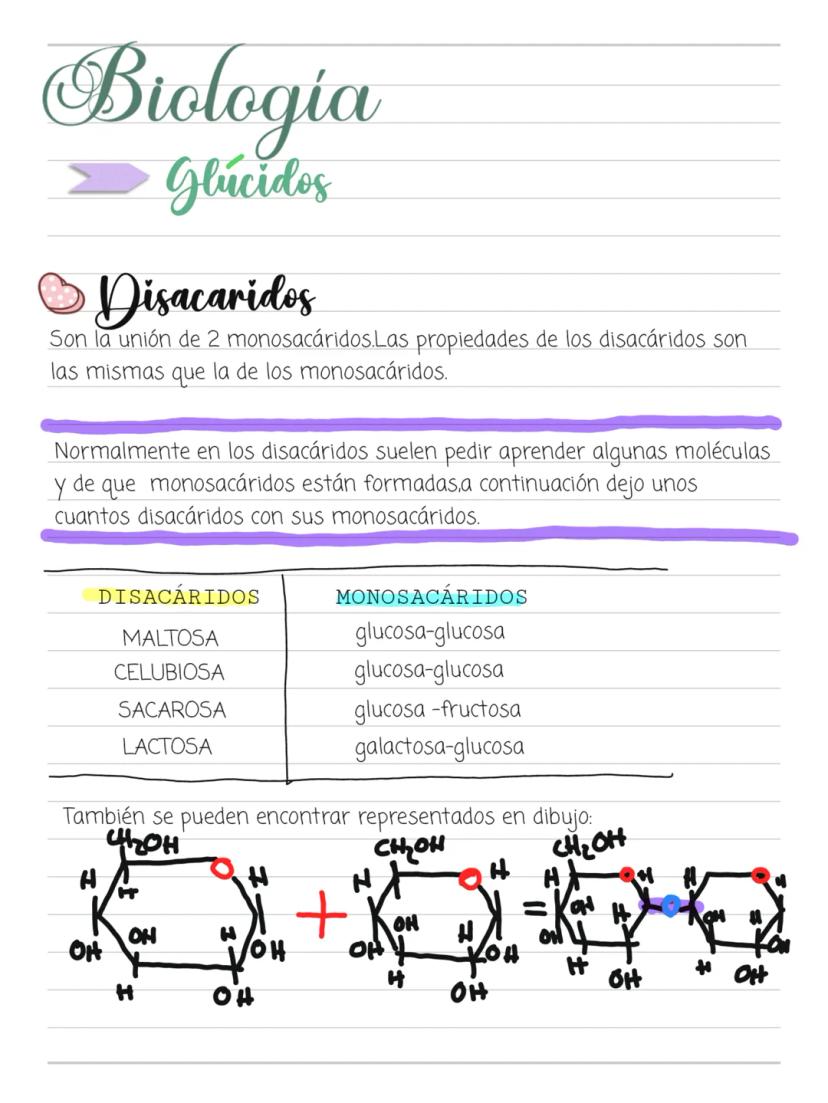 Biología
Glúcidos
Disacaridos
Son la unión de 2 monosacáridos.Las propiedades de los disacáridos son
las mismas que la de los monosacáridos.
Normalmente en los disacáridos suelen pedir aprender algunas moléculas
y de que monosacáridos están formadas,a continuación dejo unos
cuantos disacáridos con sus monosacáridos.
DISACÁRIDOS MONOSACÁRIDOS
MALTOSA glucosa-glucosa
CELUBIOSA glucosa-glucosa
SACAROSA glucosa -fructosa
LACTOSA galactosa-glucosa
También se pueden encontrar representados en dibujo:
CH₂OH CH₂OH CH₂OH
H H H H H H H H
H
+ =
OH OH H OH OH OH H OH OH OH H OH H OH
H OH H OH H OH H OH